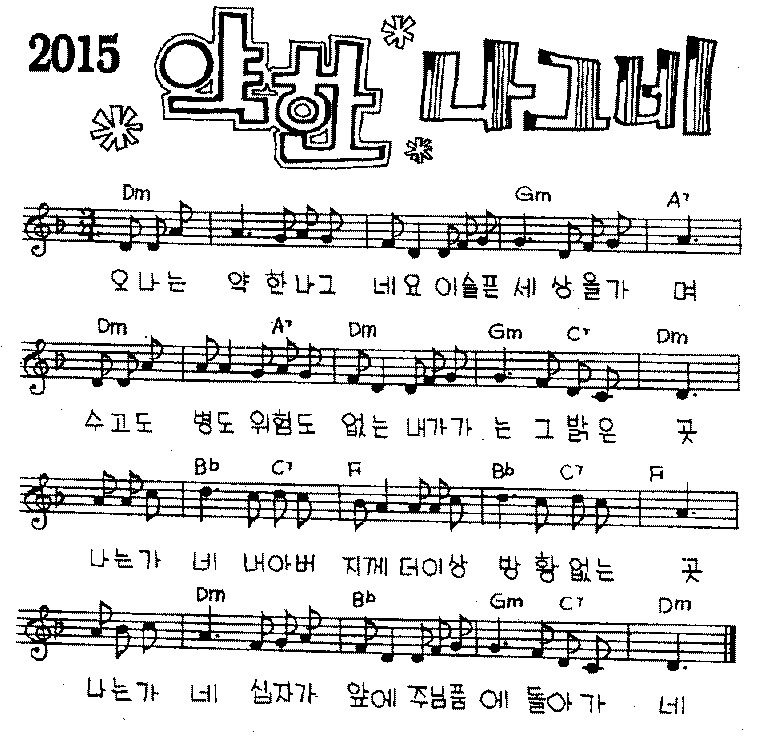 2015 약한 나그네
Dm Gm A7
오 나 는 약 한 나 그 네 요 이 슬 픈 세 상 을 가 며
Dm A7 Dm Gm C7 Dm
수 고 도 병 도 위 험 도 없 는 내 가 가 는 그 밝 은 곳
Bb C7 F Bb C7 F
나 는 가 네 내 아 버 지 께 더 이 상 방 황 없 는 곳
Dm Bb Gm C7 Dm
나 는 가 네 십 자 가 앞 에 주 님 품 에 돌 아 가 네